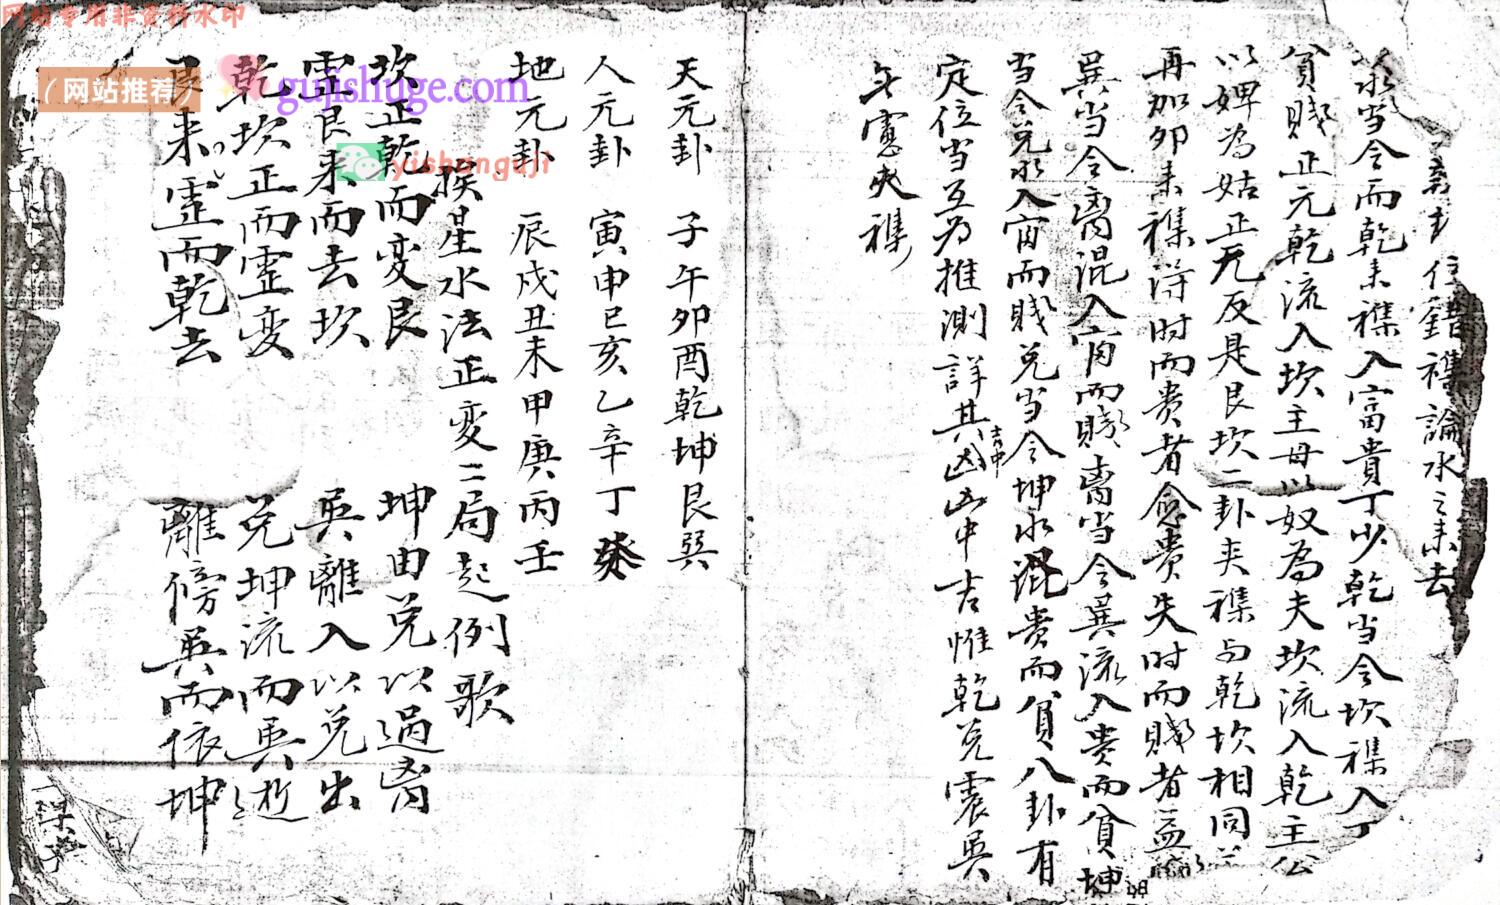 錯襍論水之来去
水当令而乾来襍入富貴丁少乾当令坎襍入丁
貧賤正元乾流入坎主母以奴為夫坎流入乾主公
以婢為姑正元反是艮坎二卦夹襍与乾坎相同
再加卯来襍淂时而贵者愈贵失时而賤者益
巽当令离混入富而賤离当令巽流入贵而貧坤
当令兑水入富而賤兑当令坤水混贵而貧八卦有
定位当互为推測詳其吉中凶凶中吉惟乾兑震巽
午寗夾襍
天元卦 子午卯酉乾坤艮巽
人元卦 寅申巳亥乙辛丁癸
地元卦 辰戌丑未甲庚丙壬
挨星水法正变二局起例歌
坎正乾而变艮 坤由兑以過离
霊艮来而去坎 巽離入以兑出
乾坎正而霊变 兑坤流而巽逝
艮来霊而乾去 離傍巽而依坤
网站专用非资料水印
（网站推荐）
gujishuge.com
yishanguji